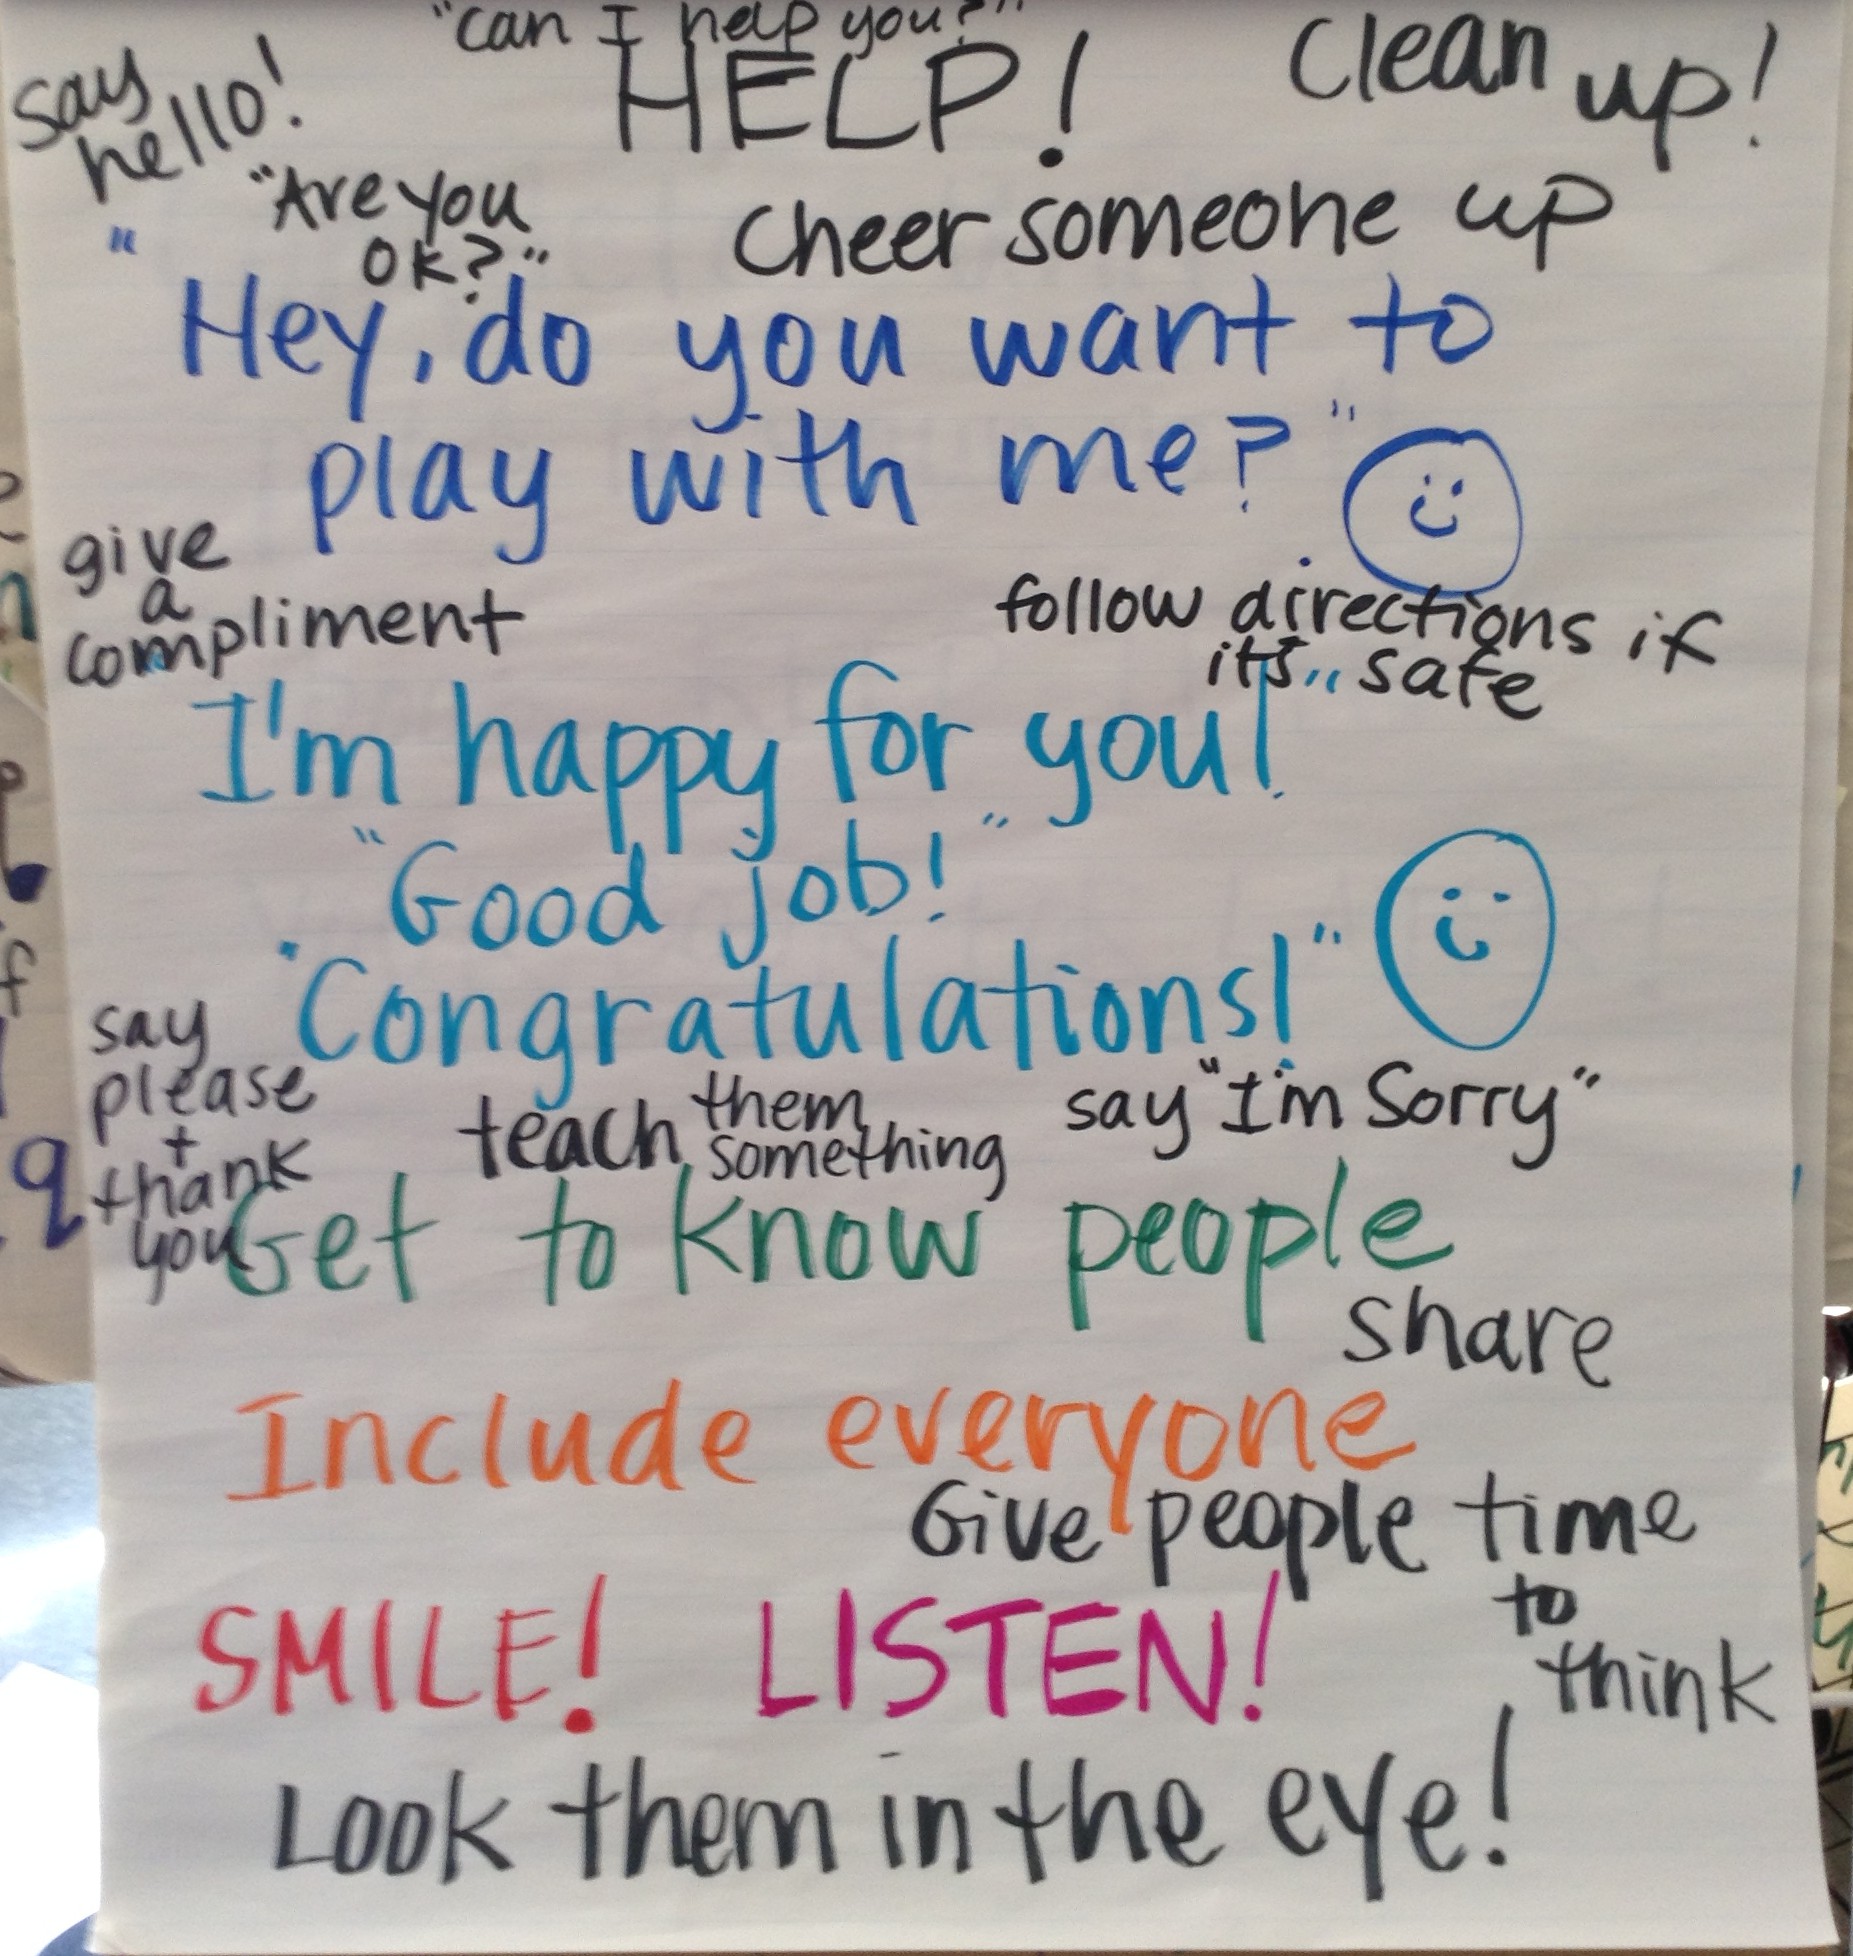 "can I help you?"
say
hello!
HELP!
clean up!
"Are you
ok?"
cheer someone up
"Hey, do you want to
play with me?"
give
a
compliment
follow directions if
it's safe
"I'm happy for you!"
"Good job!"
"Congratulations!"
say
please
+
thank
you
teach them
something
say "I'm Sorry"
Get to know people
share
Include everyone
Give people time
to
think
SMILE! LISTEN!
Look them in the eye!